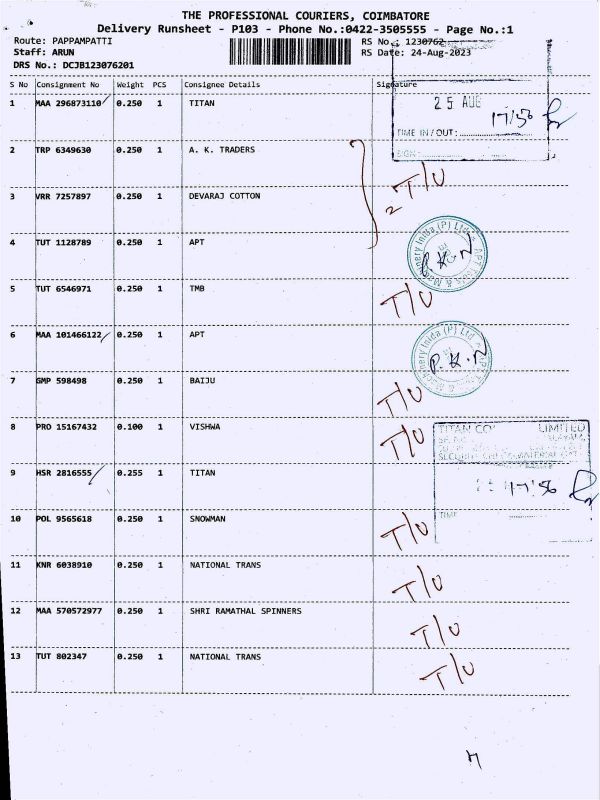 THE PROFESSIONAL COURIERS, COIMBATORE
Delivery Runsheet - P103 - Phone No.:0422-3505555 - Page No.:1
Route: PAPPAMPATTI RS No.: 1230762
Staff: ARUN RS Date: 24-Aug-2023
DRS No.: DCJB123076201
S No Consignment No Weight PCS Consignee Details Signature
1 MAA 296873110 0.250 1 TITAN
25 AUG
17/56
TIME IN / OUT:
SIGN:
2 TRP 6349630 0.250 1 A. K. TRADERS
2 T/U
3 VRR 7257897 0.250 1 DEVARAJ COTTON
4 TUT 1128789 0.250 1 APT
Machinery Inida (P) Ltd
5 TUT 6546971 0.250 1 TMB T/U
6 MAA 101466122 0.250 1 APT
Machinery Inida (P) Ltd
P.K.N
7 GMP 598498 0.250 1 BAIJU T/U
8 PRO 15167432 0.100 1 VISHWA T/U
TITAN CO LIMITED
9 HSR 2816555 0.255 1 TITAN
17:56
TIME
10 POL 9565618 0.250 1 SNOWMAN T/U
11 KNR 6038910 0.250 1 NATIONAL TRANS T/U
12 MAA 570572977 0.250 1 SHRI RAMATHAL SPINNERS T/U
13 TUT 802347 0.250 1 NATIONAL TRANS T/U